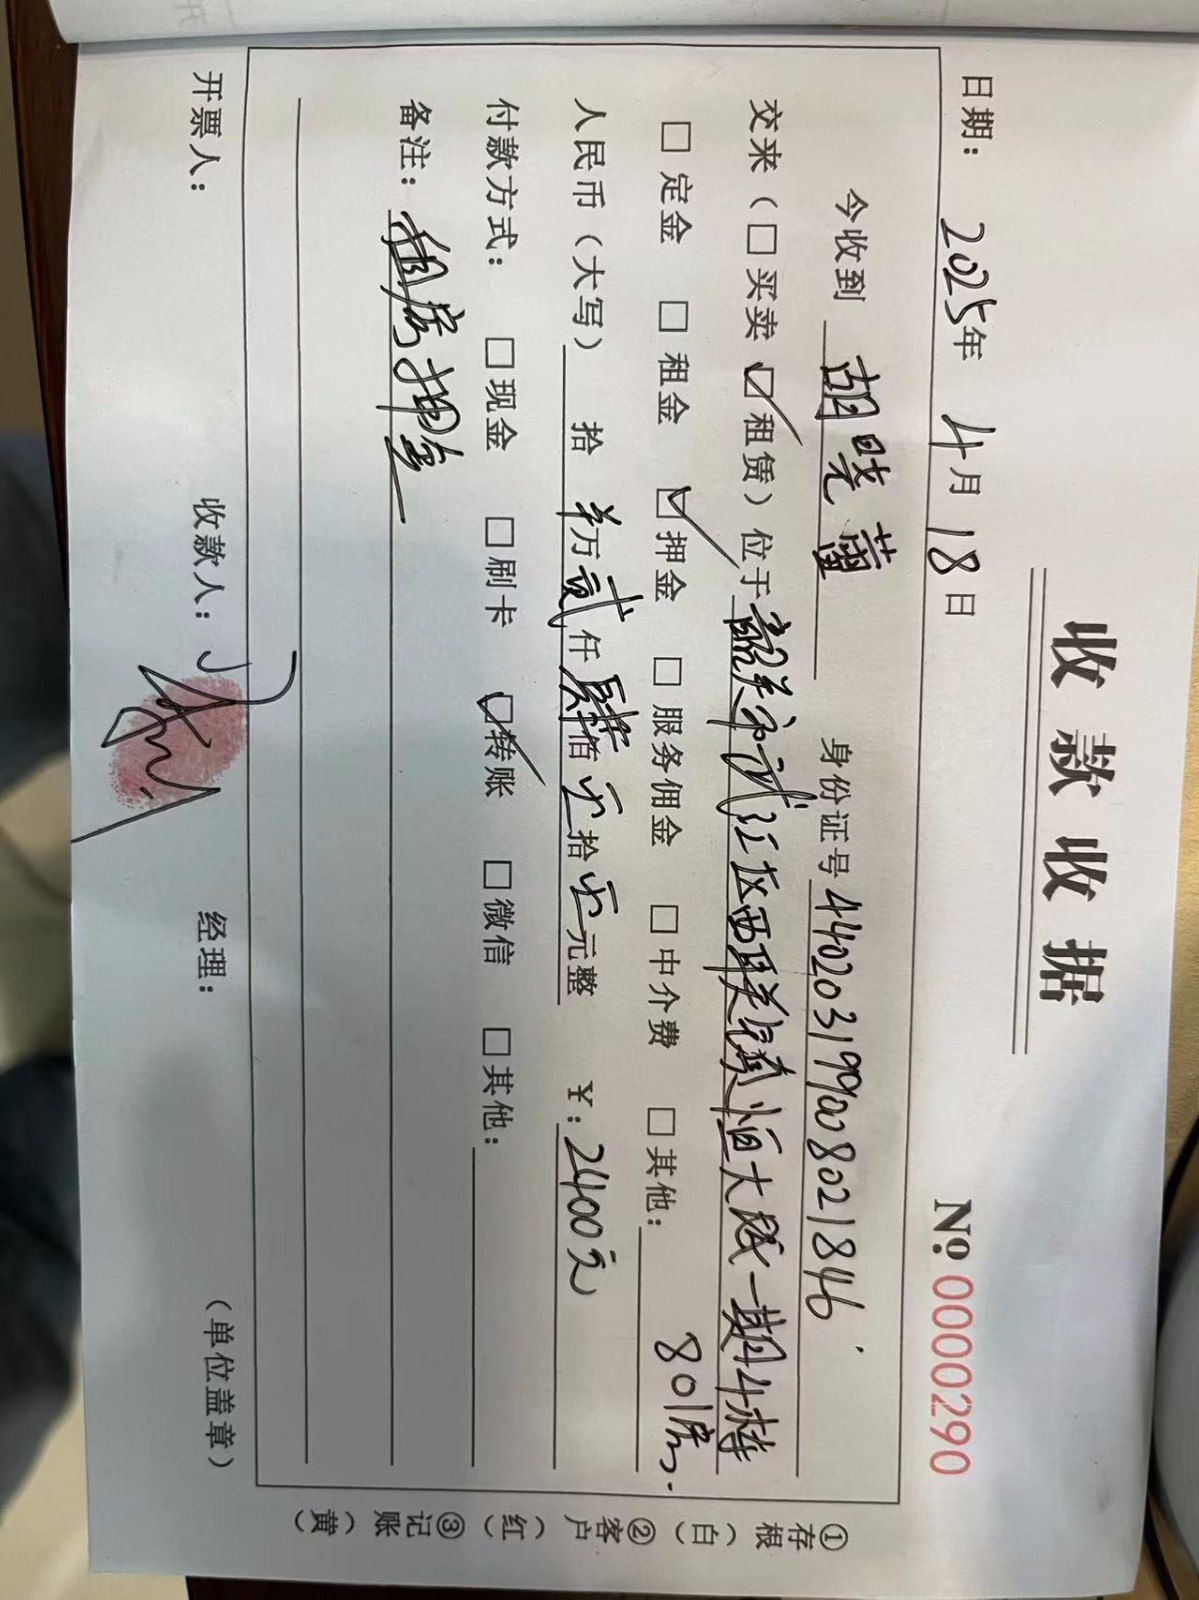 收款收据
日期：2025年4月18日 №00002​90
今收到 胡晓蕾 身份证号 440203199008021846
交来（□买卖 ☑租赁）位于韶关市武江区西联镇恒大城一期4栋
801房
□定金 □租金 ☑押金 □服务佣金 □中介费 □其他：
人民币（大写） 拾 万贰仟肆佰零拾零元整 ¥：2400元
付款方式： □现金 □刷卡 ☑转账 □微信 □其他：
备注：租房押金
开票人： 收款人： 经理： （单位盖章）
①存根（白）②客户（红）③记账（黄）